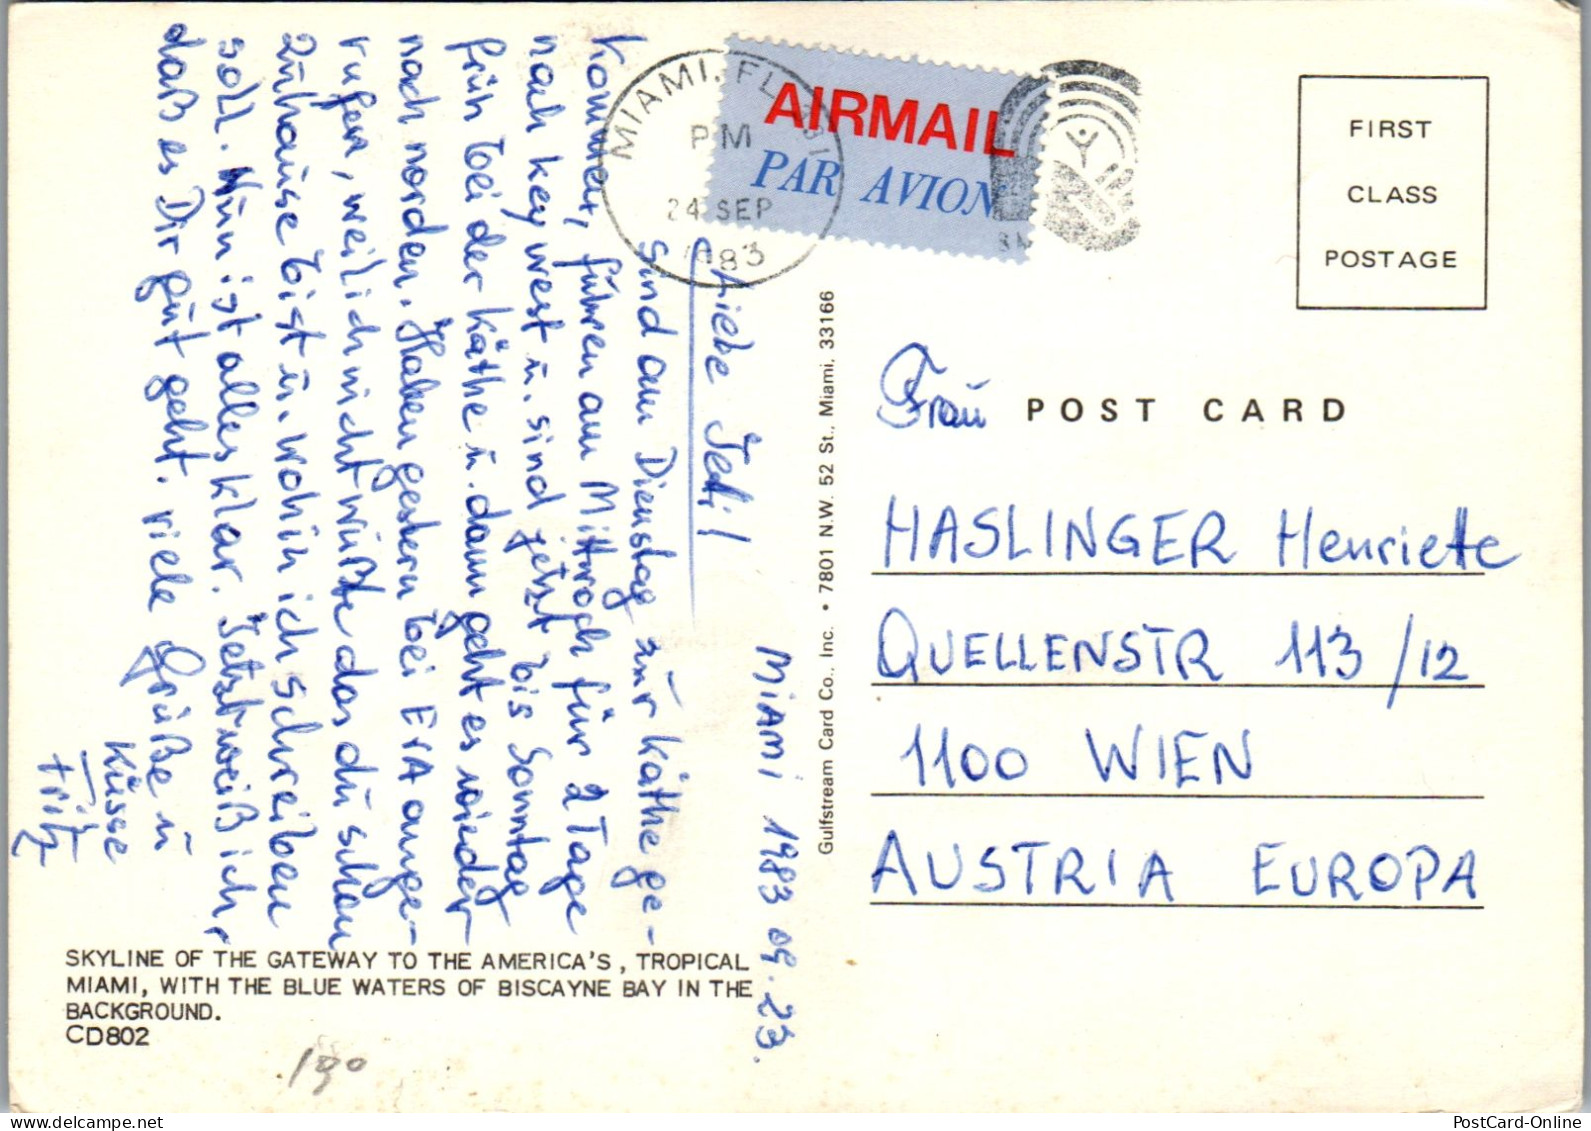 MIAMI, FL 331
PM
24 SEP
1983
AIRMAIL
PAR AVION
FIRST
CLASS
POSTAGE
POST CARD
Frau
HASLINGER Henriette
QUELLENSTR 113/12
1100 WIEN
AUSTRIA EUROPA
Gulfstream Card Co., Inc. • 7801 N.W. 52 St., Miami, 33166
MIAMI 1983 09.23.
Liebe Jetti!
Sind am Dienstag zur Käthe ge-
kommen, führen am Mittwoch für 2 Tage
nach key west u. sind jetzt bis Sonntag
früh bei der Käthe u. dann geht es wieder
nach norden. Haben gestern bei ErA ange-
rufen, weil ich nicht wußte das du schon
zuhause bist u. wohin ich schreiben
soll. Nun ist alles klar. Jetzt weiß ich,
daß es Dir gut geht. viele Grüße u
Küsse
Fritz
SKYLINE OF THE GATEWAY TO THE AMERICA'S, TROPICAL
MIAMI, WITH THE BLUE WATERS OF BISCAYNE BAY IN THE
BACKGROUND.
CD802
190
PostCard-Online
www.delcampe.net